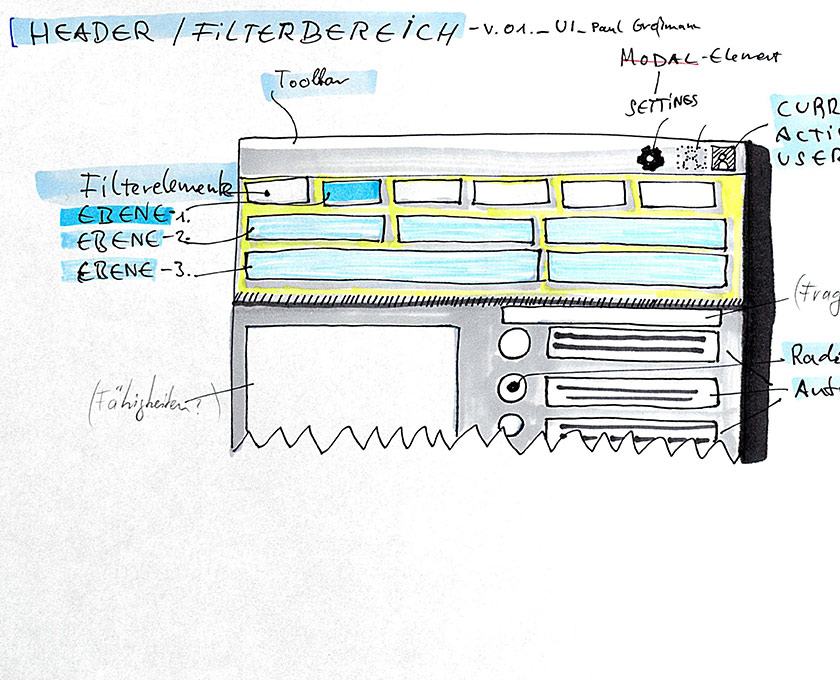 HEADER / FILTERBEREICH - V.01._ UI_ Paul Großmann
MODAL-Element
Toolbar
SETTINGS
CURR
ACTI
USER
Filterelemente
EBENE-1.
EBENE-2.
EBENE-3.
(Frag
Radi
(Fähigkeiten?)
Ant